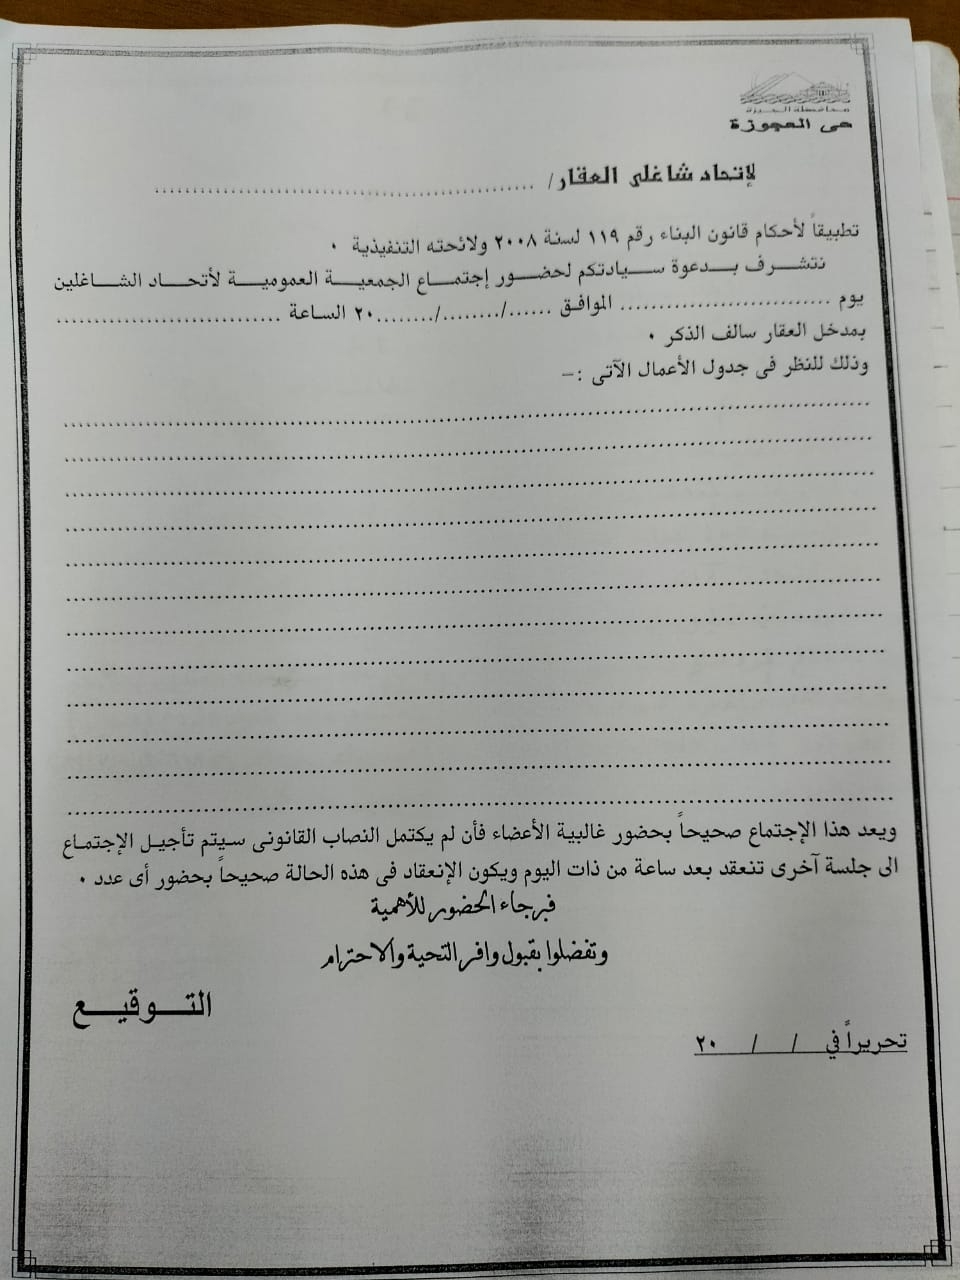 محافظة الجيزة
حى العجوزة
لإتحاد شاغلى العقار/ ................................................
تطبيقاً لأحكام قانون البناء رقم ١١٩ لسنة ٢٠٠٨ ولائحته التنفيذية .
نتشرف بدعوة سيادتكم لحضور إجتماع الجمعية العمومية لأتحاد الشاغلين
يوم .......................... الموافق ....../......../........٢٠ الساعة ............................
بمدخل العقار سالف الذكر .
وذلك للنظر فى جدول الأعمال الآتى :-
ويعد هذا الإجتماع صحيحاً بحضور غالبية الأعضاء فأن لم يكتمل النصاب القانونى سيتم تأجيل الإجتماع
الى جلسة آخرى تنعقد بعد ساعة من ذات اليوم ويكون الإنعقاد فى هذه الحالة صحيحاً بحضور أى عدد .
فبرجاء الحضور للأهمية
وتفضلوا بقبول وافر التحية والاحترام
التوقيع
تحريراً في / / ٢٠